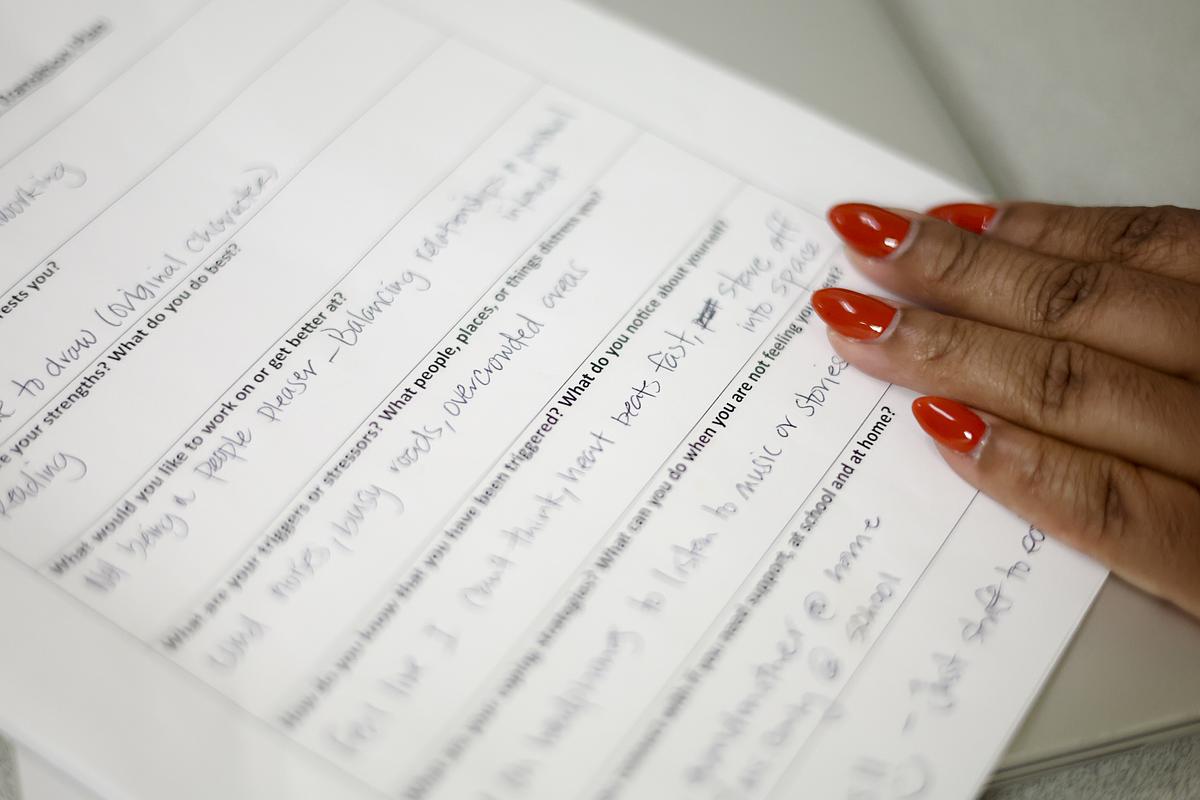 Transition Plan
working
rests you?
to draw (original character)
your strengths? What do you do best?
Reading
What would you like to work on or get better at?
Not being a people pleaser - Balancing relationships
interest
What are your triggers or stressors? What people, places, or things distress you?
Loud noises, busy roads, overcrowded areas
How do you know that you have been triggered? What do you notice about yourself?
Feel like I can't think, heart beats fast, stare off
into space
What are your coping strategies? What can you do when you are not feeling your
to listen to music or stories
if you need support, at school and at home?
Grandmother @ home
@ school
- Just start to